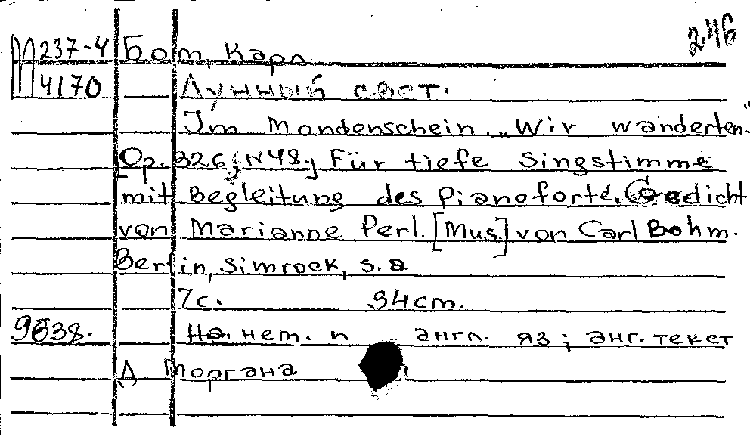 246
М237-4 Бом, Карл
4170 Лунный свет.
Im Mondenschein „Wir wanderten."
Op. 326, N48.; Für tiefe Singstimme
mit Begleitung des Pianoforte. Gedicht
von Marianne Perl. [Mus.] von Carl Bohm.
Berlin, Simrock, s. a
7с. 34cm.
9638. На нем. и англ. яз; анг. текст
Д Моргана